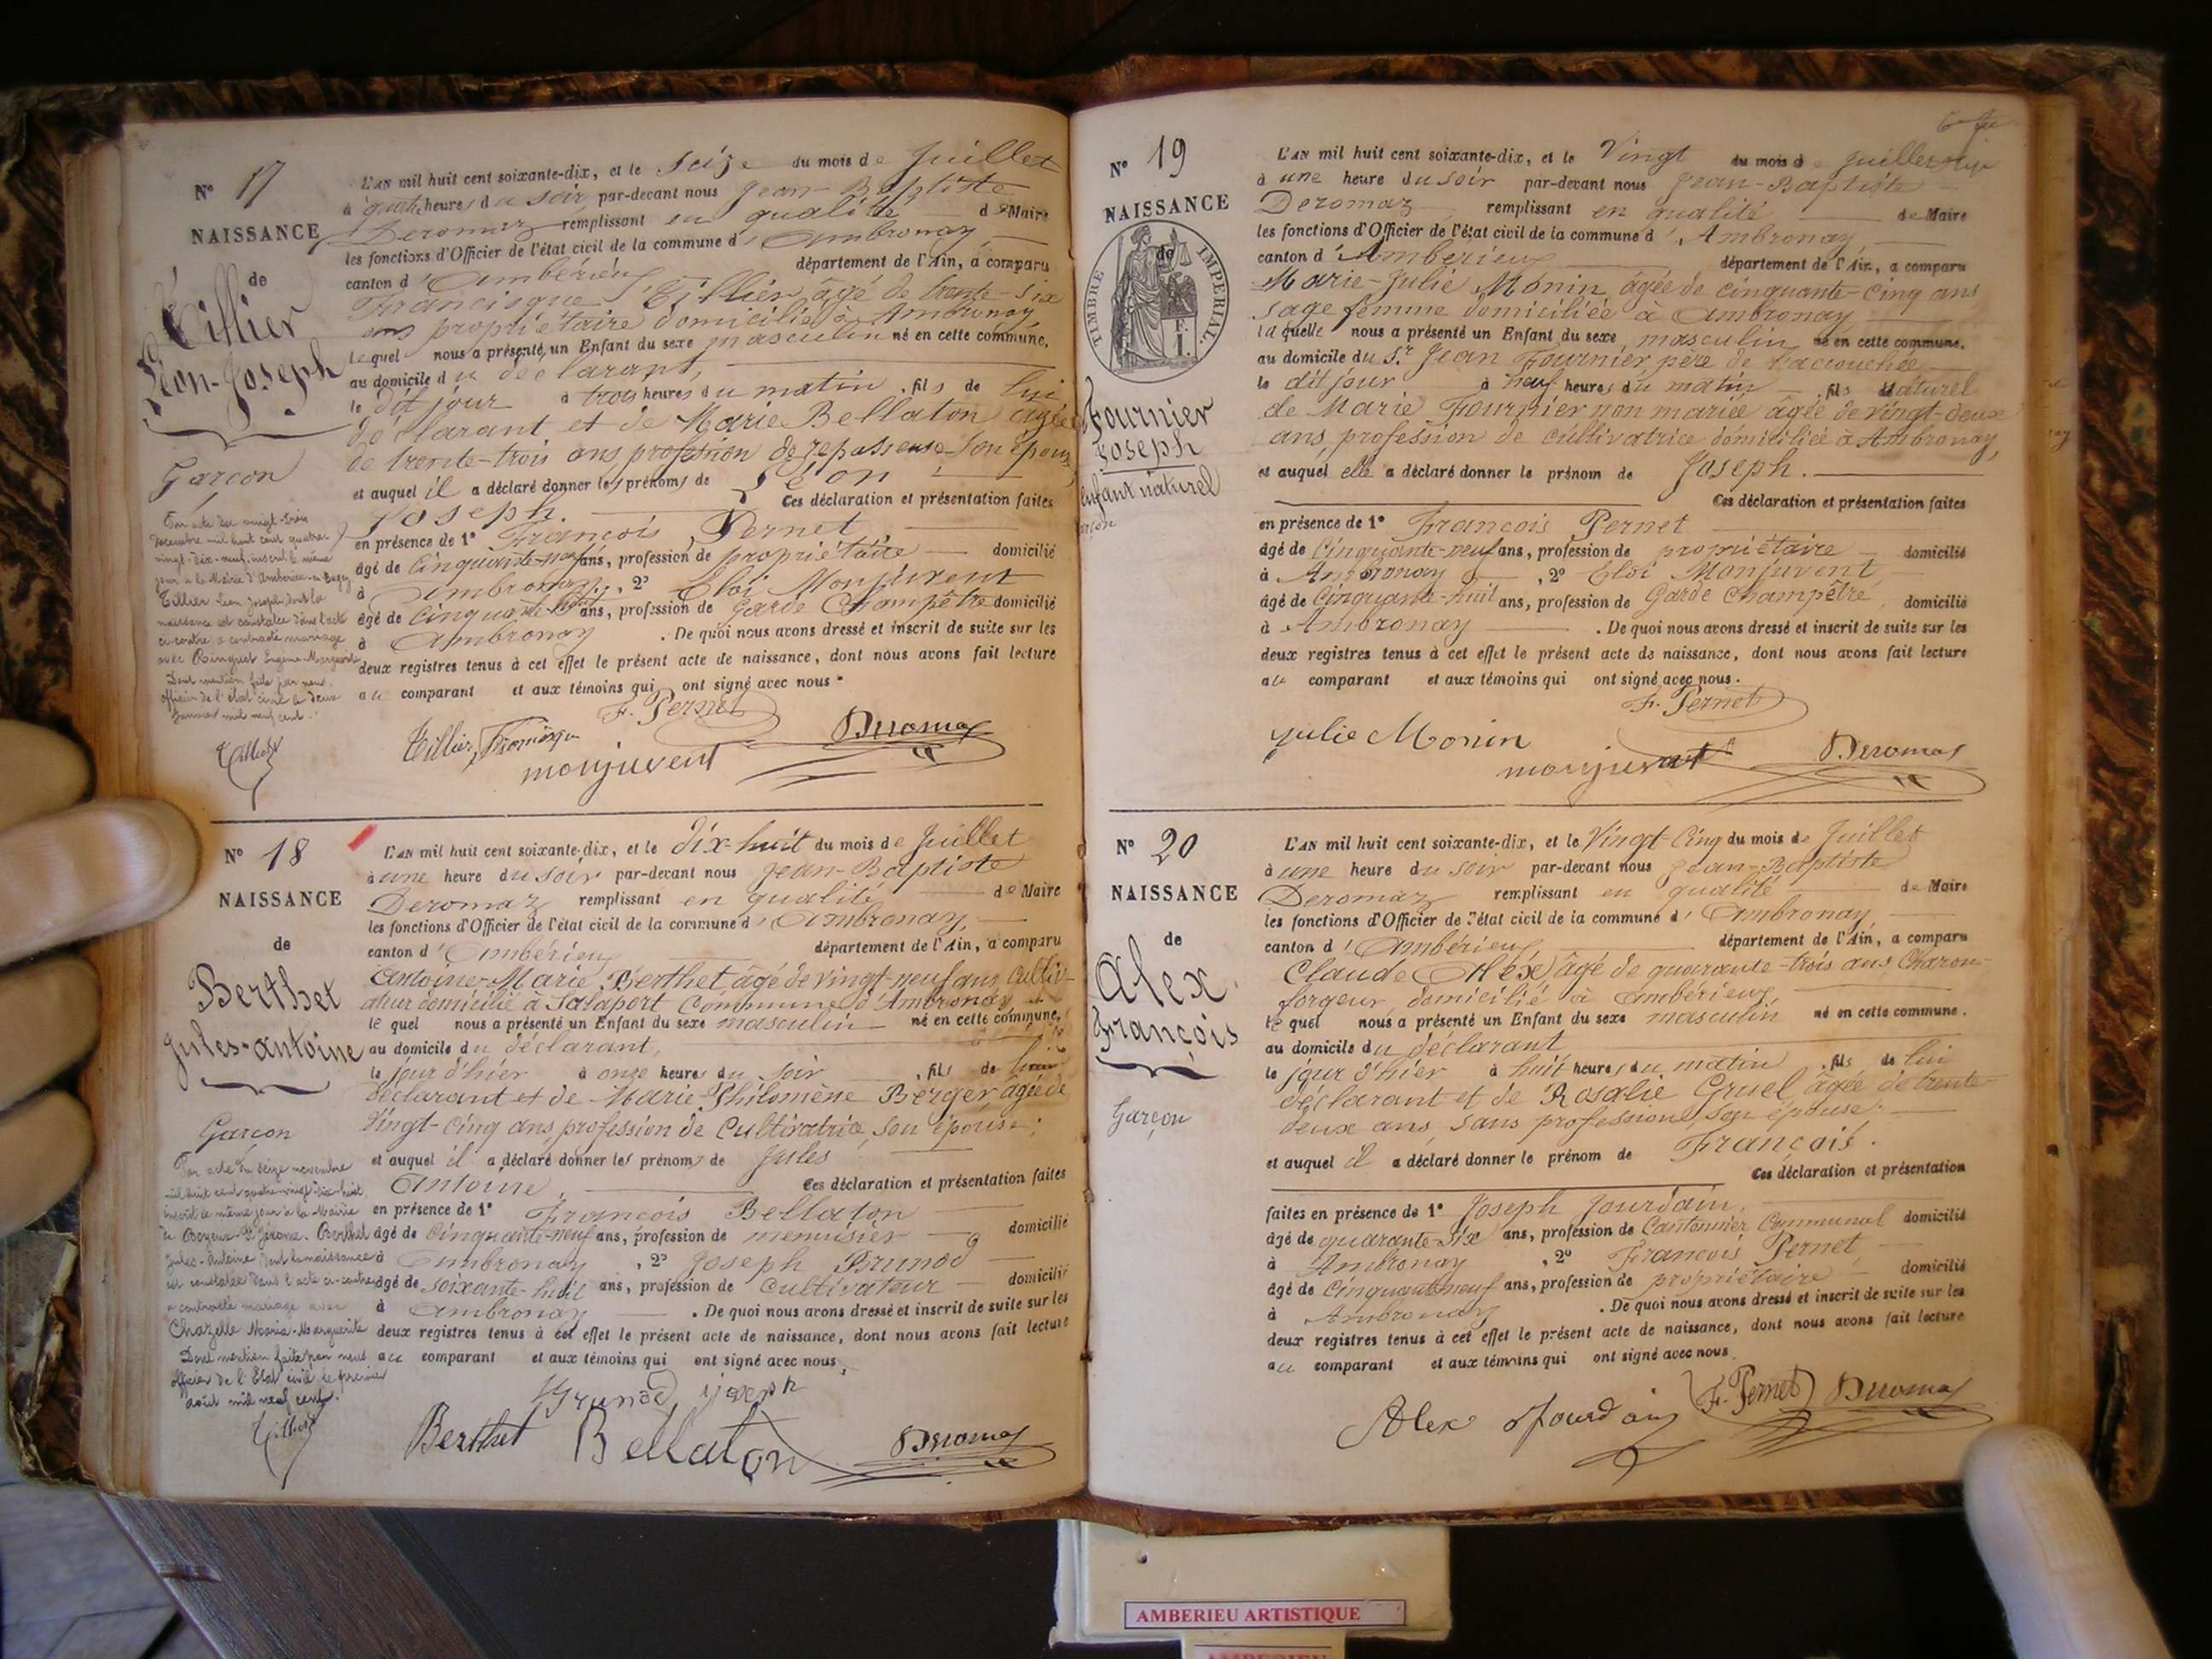 N° 17
NAISSANCE
de
Tillier
Léon-Joseph
Garçon
Par acte du vingt-trois
Décembre mil huit cent quatre-
vingt-dix-neuf, inscrit le même
jour à la Mairie d'Ambérieu-en-Bugey
Tillier Léon Joseph, dont la
naissance est constatée dans l'acte
ci-contre, a contracté mariage
avec Eugénie-Marguerite
Dont mention faite par nous,
officier de l'état civil le deux
Janvier mil neuf cent.
L'AN mil huit cent soixante-dix, et le Seize du mois de Juillet
à quatre heures du soir par-devant nous Jean-Baptiste
Deromaz remplissant en qualité de Maire
les fonctions d'Officier de l'état civil de la commune d'Ambronay
canton d'Ambérieux département de l'Ain, a comparu
Francisque Tillier âgé de trente-six
ans propriétaire domicilié à Ambronay
lequel nous a présenté un Enfant du sexe masculin né en cette commune,
au domicile du déclarant,
le dit jour à trois heures du matin, fils de lui
déclarant et de Marie Bellaton âgée
de trente-trois ans profession de repasseuse son épouse
et auquel il a déclaré donner les prénoms de Léon
Joseph. Ces déclaration et présentation faites
en présence de 1° François Pernet
âgé de Cinquante-neuf ans, profession de propriétaire domicilié
à Ambronay, 2° Eloi Monjuvent
âgé de Cinquante-huit ans, profession de Garde Champêtre domicilié
à Ambronay. De quoi nous avons dressé et inscrit de suite sur les
deux registres tenus à cet effet le présent acte de naissance, dont nous avons fait lecture
au comparant et aux témoins qui ont signé avec nous.
F. Pernet
Tillier Deromaz
monjuvent
N° 18
NAISSANCE
de
Berthet
Jules-Antoine
Garçon
Par acte du seize novembre
mil huit cent quatre-vingt-dix-huit,
inscrit le même jour à la Mairie
de Boyeux-St Jérome. Berthet
Jules-Antoine dont la naissance
est constatée dans l'acte ci-contre
a contracté mariage avec
Chazelle Maria-Marguerite
Dont mention faite par nous
officier de l'Etat civil le premier
août mil neuf cent.
L'AN mil huit cent soixante-dix, et le dix-huit du mois de Juillet
à une heure du soir par-devant nous Jean-Baptiste
Deromaz remplissant en qualité de Maire
les fonctions d'Officier de l'état civil de la commune d'Ambronay,
canton d'Ambérieux département de l'Ain, a comparu
Antoine-Marie Berthet âgé de vingt-neuf ans Cultiv-
ateur domicilié à Salaport Commune d'Ambronay
lequel nous a présenté un Enfant du sexe masculin né en cette commune,
au domicile du déclarant,
le jour d'hier à onze heures du soir, fils de lui
déclarant et de Marie Philomène Berger âgée de
Vingt-Cinq ans profession de Cultivatrice, son épouse;
et auquel il a déclaré donner les prénoms de Jules
Antoine, Ces déclaration et présentation faites
en présence de 1° François Bellaton
âgé de Cinquante-neuf ans, profession de menuisier domicilié
à Ambronay, 2° Joseph Brunod
âgé de soixante-huit ans, profession de Cultivateur domicilié
à Ambronay. De quoi nous avons dressé et inscrit de suite sur les
deux registres tenus à cet effet le présent acte de naissance, dont nous avons fait lecture
au comparant et aux témoins qui ont signé avec nous.
Brunod joseph
Berthet Bellaton Deromaz
N° 19
NAISSANCE
de
TIMBRE IMPERIAL.
Fournier
Joseph
Enfant naturel
L'AN mil huit cent soixante-dix, et le Vingt du mois de Juillet
à une heure du soir par-devant nous Jean-Baptiste
Deromaz remplissant en qualité de Maire
les fonctions d'Officier de l'état civil de la commune d'Ambronay
canton d'Ambérieux département de l'Ain, a comparu
Marie-Julie Monin âgée de cinquante-cinq ans
sage femme domiciliée à Ambronay
laquelle nous a présenté un Enfant du sexe masculin né en cette commune,
au domicile du Sr Jean Fournier père de l'accouchée
le dit jour à neuf heures du matin, fils Naturel
de Marie Fournier non mariée âgée de vingt-deux
ans, profession de cultivatrice domiciliée à Ambronay,
et auquel elle a déclaré donner le prénom de Joseph.
Ces déclaration et présentation faites
en présence de 1° François Pernet
âgé de Cinquante-neuf ans, profession de propriétaire domicilié
à Ambronay, 2° Eloi Monjuvent
âgé de Cinquante-huit ans, profession de Garde Champêtre, domicilié
à Ambronay. De quoi nous avons dressé et inscrit de suite sur les
deux registres tenus à cet effet le présent acte de naissance, dont nous avons fait lecture
au comparant et aux témoins qui ont signé avec nous.
F. Pernet
julie Monin
monjuvent Deromaz
N° 20
NAISSANCE
de
Alex
François
Garçon
L'AN mil huit cent soixante-dix, et le Vingt-Cinq du mois de Juillet
à une heure du soir par-devant nous Jean-Baptiste
Deromaz remplissant en qualité de Maire
les fonctions d'Officier de l'état civil de la commune d'Ambronay,
canton d'Ambérieux département de l'Ain, a comparu
Claude Alex âgé de quarante-trois ans, Charon-
forgeur, domicilié à Ambérieux,
lequel nous a présenté un Enfant du sexe masculin né en cette commune,
au domicile du déclarant
le jour d'hier à huit heures du matin, fils de lui
déclarant et de Rosalie Gruel âgée de trente
deux ans, sans profession, son épouse;
et auquel il a déclaré donner le prénom de François.
Ces déclaration et présentation
faites en présence de 1° Joseph Jourdain,
âgé de quarante-six ans, profession de Cantonnier Communal domicilié
à Ambronay, 2° François Pernet,
âgé de Cinquante-neuf ans, profession de propriétaire domicilié
à Ambronay. De quoi nous avons dressé et inscrit de suite sur les
deux registres tenus à cet effet le présent acte de naissance, dont nous avons fait lecture
au comparant et aux témoins qui ont signé avec nous.
Alex Jourdain F. Pernet Deromaz
AMBERIEU ARTISTIQUE
AMBERIEU